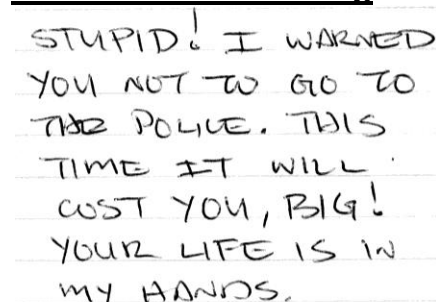 STUPID! I WARNED
YOU NOT TO GO TO
THE POLICE. THIS
TIME IT WILL
COST YOU, BIG!
YOUR LIFE IS IN
MY HANDS.